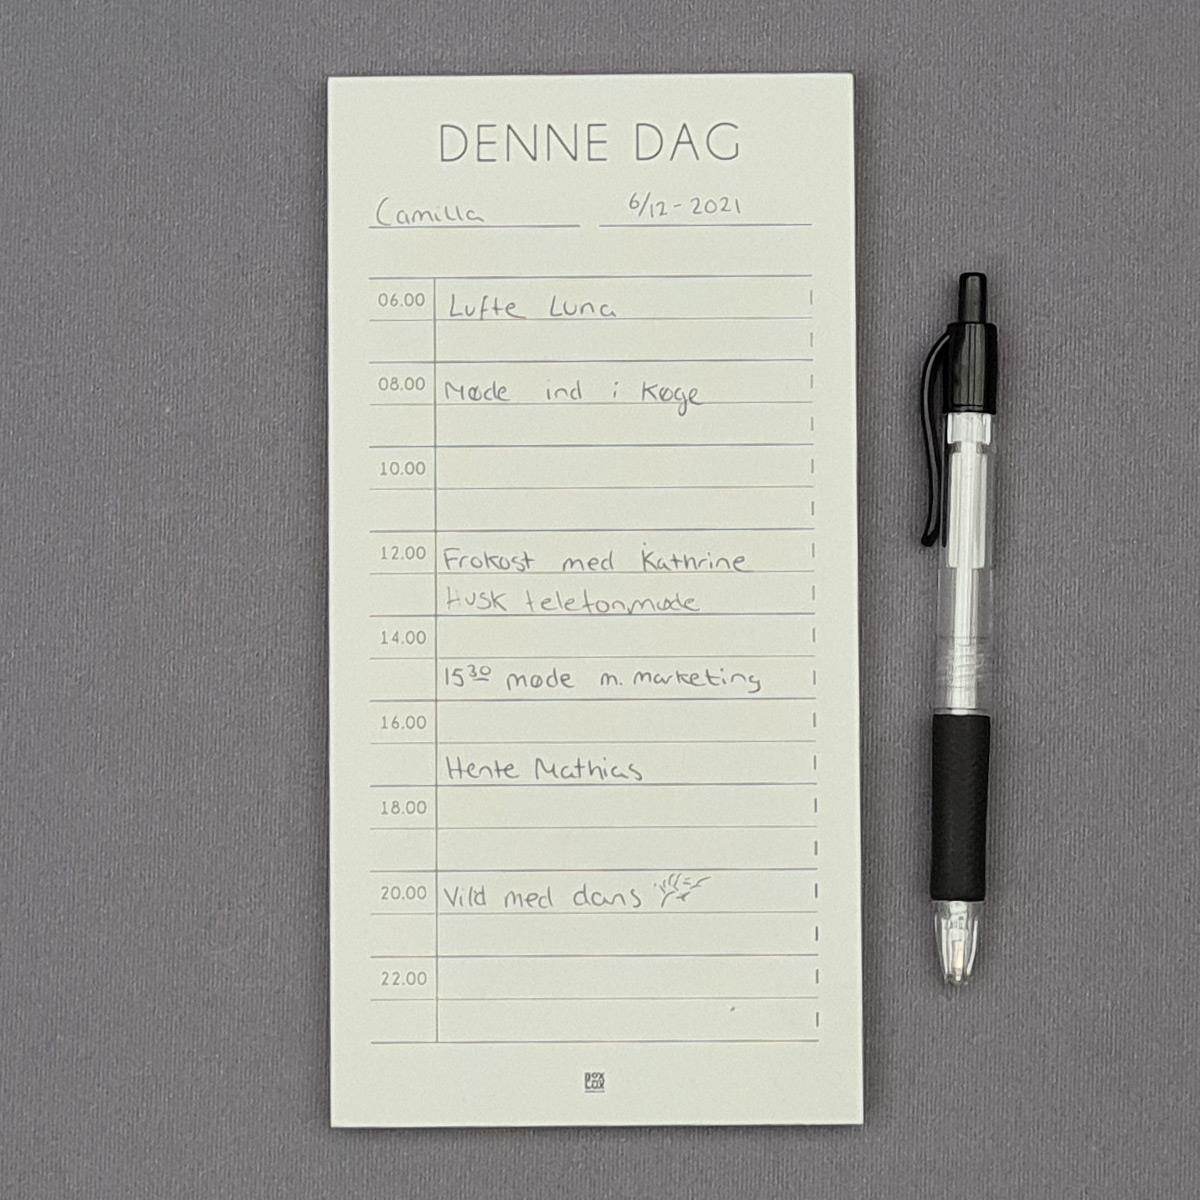 DENNE DAG
Camilla 6/12-2021
06.00 Lufte Luna
08.00 Møde ind i Køge
10.00
12.00 Frokost med Kathrine
Husk telefonmøde
14.00
15³⁰ møde m. marketing
16.00
Hente Mathias
18.00
20.00 Vild med dans
22.00